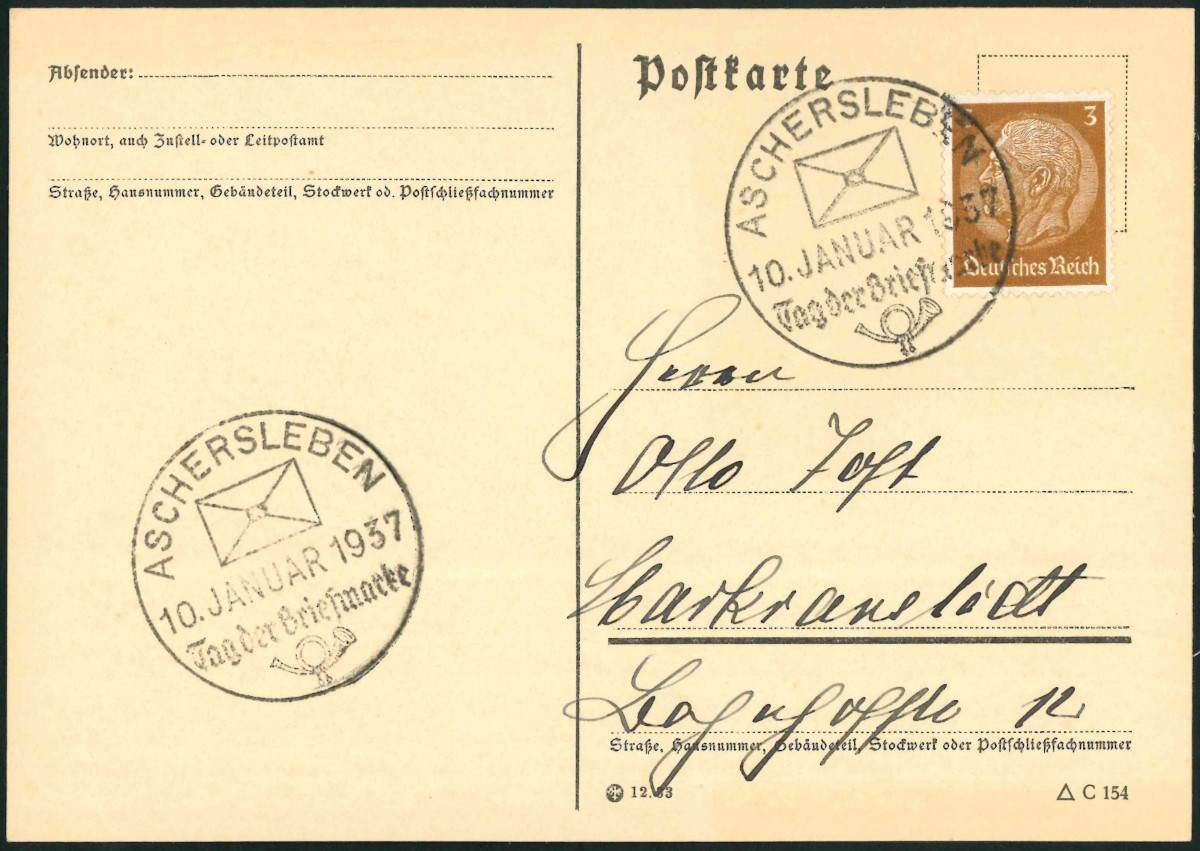 Absender:
Wohnort, auch Zustell- oder Leitpostamt
Straße, Hausnummer, Gebäudeteil, Stockwerk od. Postschließfachnummer
ASCHERSLEBEN
10. JANUAR 1937
Tag der Briefmarke
Postkarte
ASCHERSLEBEN
10. JANUAR 1937
Tag der Briefmarke
3
Deutsches Reich
Herrn
Otto
Markranstädt
Bahnhofstr 12
Straße, Hausnummer, Gebäudeteil, Stockwerk oder Postschließfachnummer
12.33
△ C 154